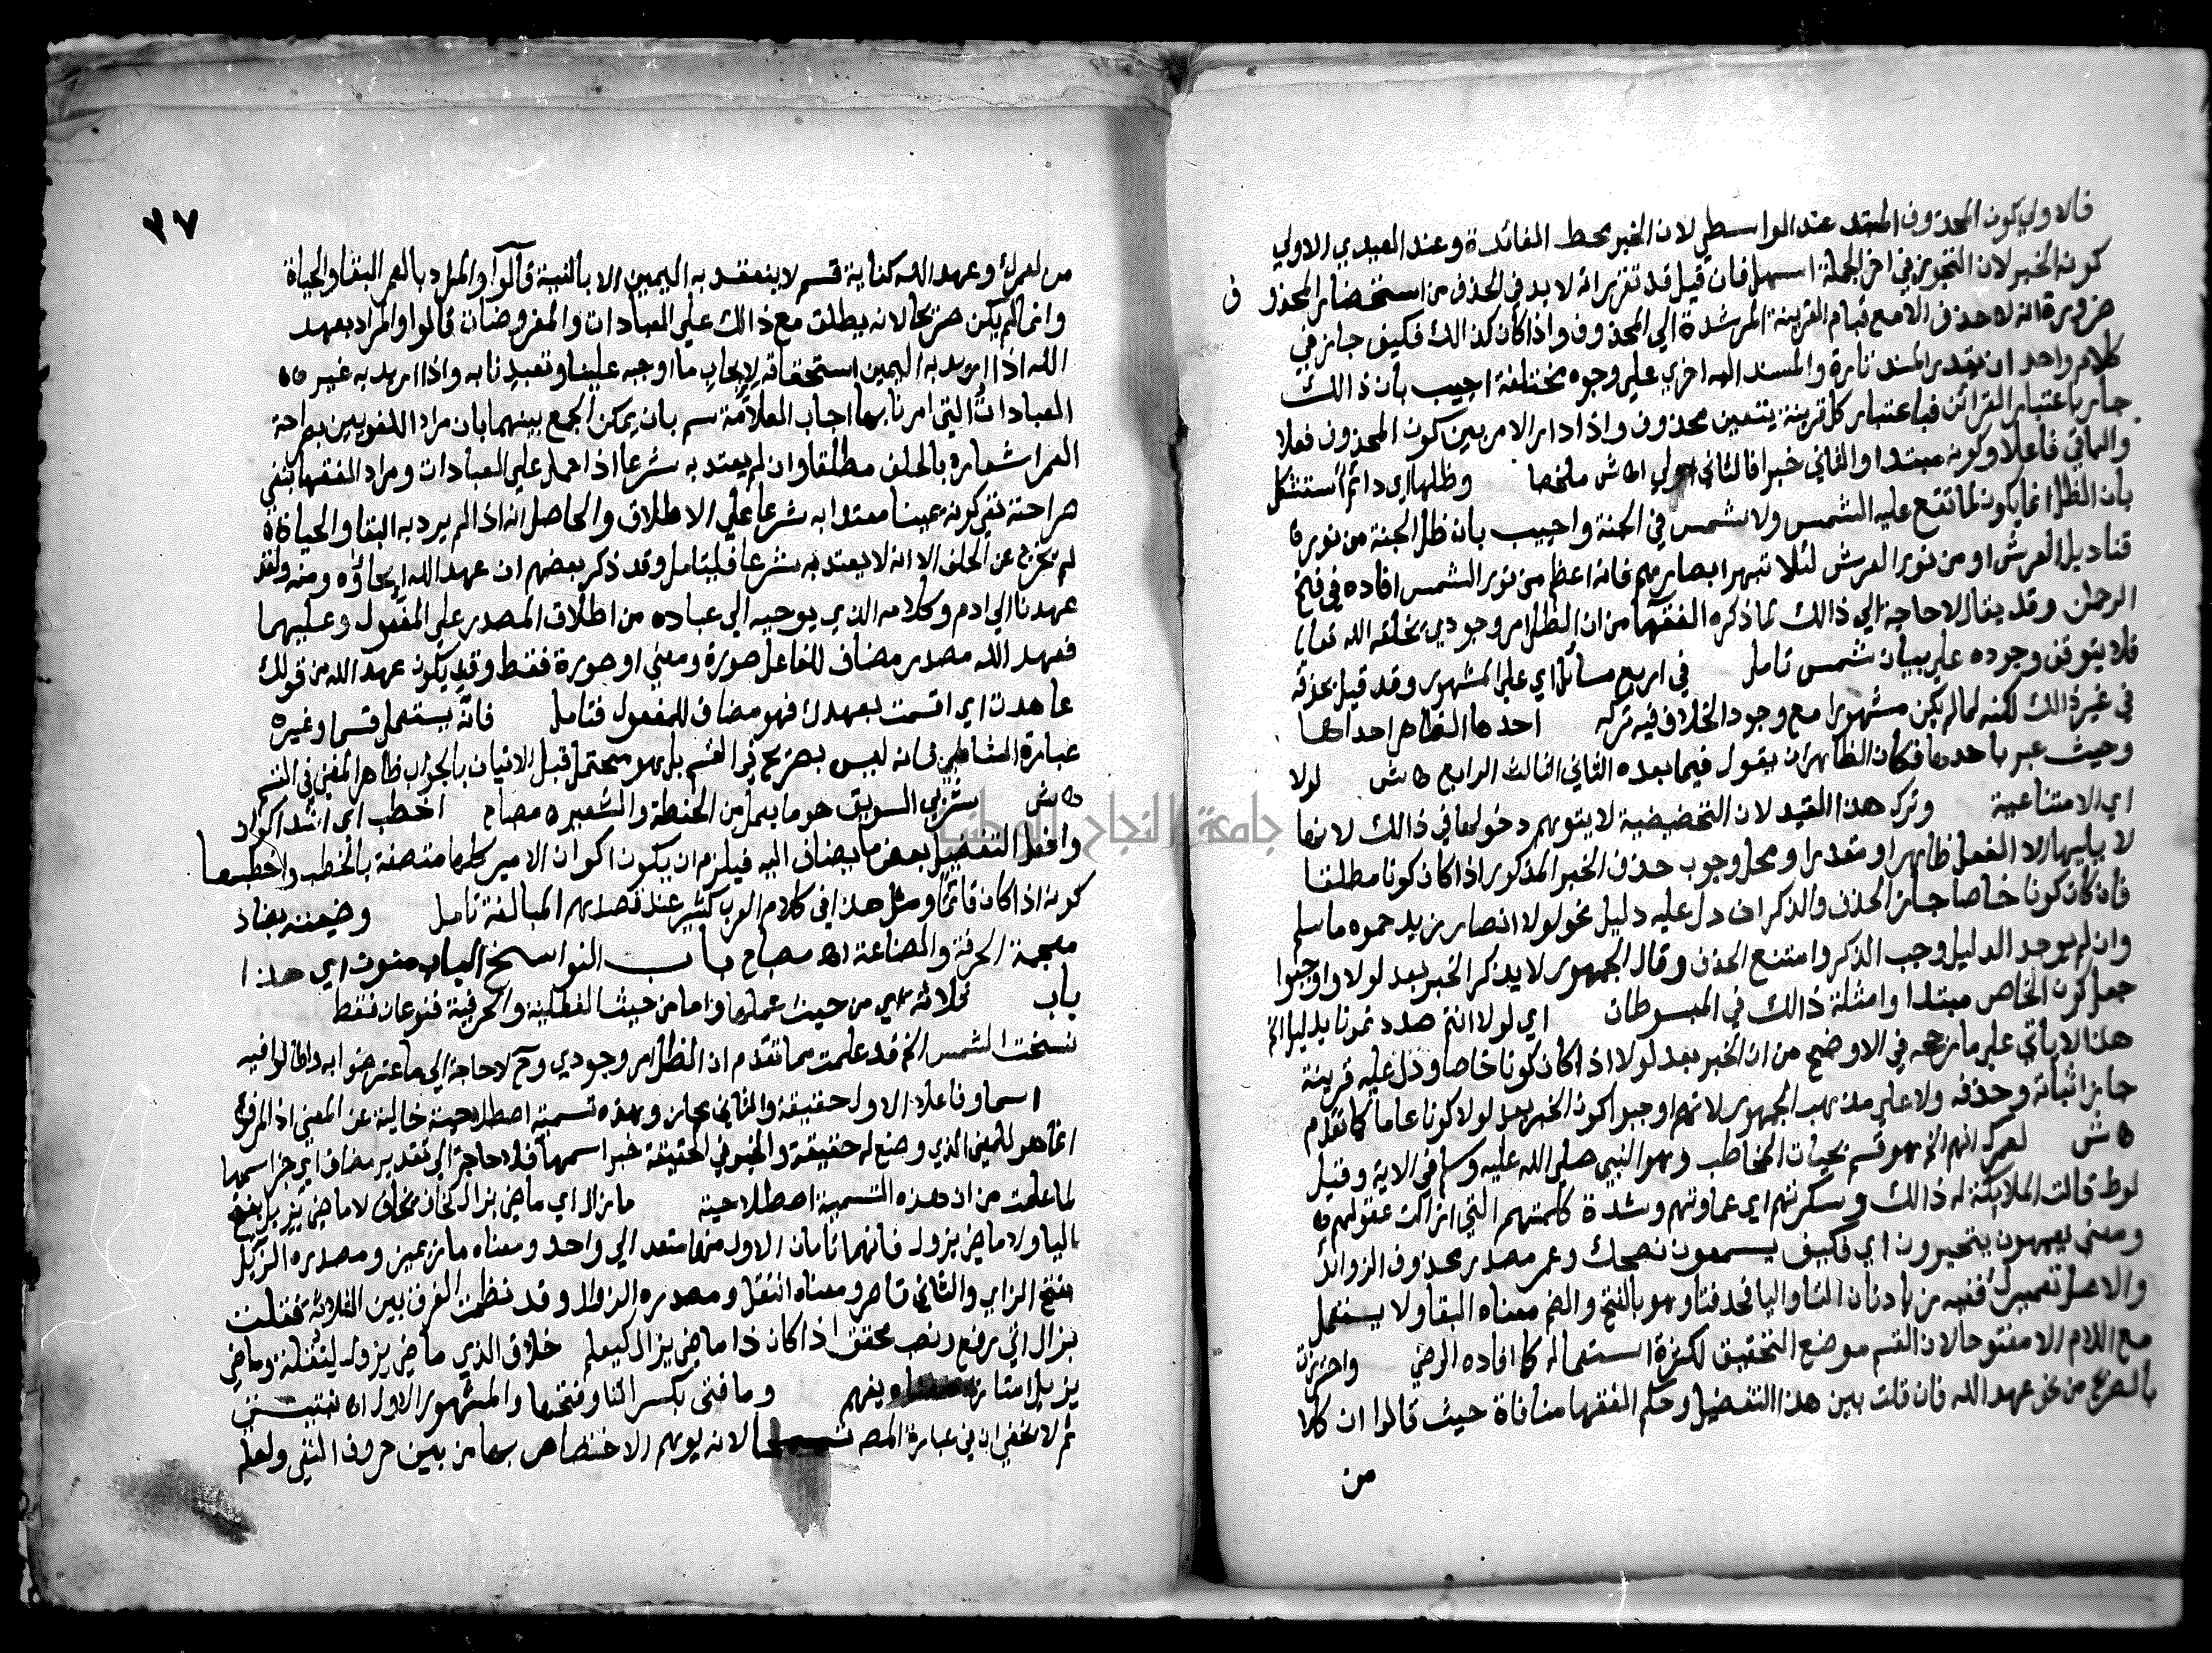 فالاولي كون المحذوف المبتدا عند الواسطي لان الخبر محط الفائدة وعند العبدي الاولي
كونه الخبر لان التجوز في اخر الجملة اسهل فان قيل قد تقرر انه لا بد في الحذف من استحضار المحذوف
ضرورة انه لا حذف الا مع قيام القرينة المرشدة الي المحذوف واذا كان كذالك فكيف جاز في
كلام واحد ان يقدر المسند تارة والمسند اليه اخري علي وجوه مختلفة اجيب بان ذالك
جار باعتبار القرائن فباعتبار كل قرينة يتعين محذوف واذا دار الامر بين كون المحذوف فعلا
والباقي فاعلا وكونه مبتدا والثاني خبرا فالثاني اولي اه ش ملخصا وظلها اي دائم استشكل
بان الظل انما يكون لما تقع عليه الشمس ولا شمس في الجنة واجيب بان ظل الجنة من نور
قناديل العرش او من نور العرش لئلا تبهر ابصارهم فانه اعظم من نور الشمس افاده في فتح
الرحمن وقد يقال لا حاجة الي ذالك لما ذكره الفقهآ من ان الظل امر وجودي يخلقه الله تعالي
فلا يتوقف وجوده علي بيان شمس تامل في اربع مسائل اي علي المشهور وقد قيل بحذفه
في غير ذالك لكنه لما لم يكن مشهورا مع وجود الخلاف فيه تركه احدها الظاهر احداها
وحيث عبر باحدها فكان الظاهر ان يقول فيما بعده الثاني الثالث الرابع اه ش لولا
اي الامتناعية وترك هذا القيد لان التحضيضية لا يتوهم دخولها في ذالك لانها
لا يليها الا الفعل ظاهرا او مقدرا ومحل وجوب حذف الخبر المذكور اذا كان كونا مطلقا
فان كان كونا خاصا جاز الحذف والذكر ان دل عليه دليل نحو لولا انصار زيد حموه ما سلم
وان لم يوجد الدليل وجب الذكر وامتنع الحذف وقال الجمهور لا يذكر الخبر بعد لولا واوجبوا
جعل كون الخاص مبتدا وامثلة ذالك في المبسوطات اي لولا انتم صددتمونا بدليل الخ
هذا لا ياتي علي ما رجحه في الاوضح من ان الخبر بعد لولا اذا كان كونا خاصا ودل عليه قرينة
جاز اثباته وحذفه ولا علي مذهب الجمهور لانهم اوجبوا كون الخبر بعد لولا كونا عاما كما تقدم
اه ش لعمرك انهم الخ هو قسم بحيات المخاطب وهو النبي صلي الله عليه وسلم في الاية وقيل
لوط قالت الملائكة له ذالك وسكرتهم اي غماوتهم وشدة كلمتهم التي ازالت عقولهم
ومعني يعمهون يتحيرون اي فكيف يسمعون نصحك وعمر مصدر محذوف الزوائد
والاصل تعميرك ففيه زيادتان التا واليا فحذفتا وهو بالفتح والضم معناه البقا ولا يستعمل
مع اللام الا مفتوحا لان القسم موضع التخفيف لكثرة استعماله كما افاده الرضي واحترزت
بالصريح من نحو عهد الله فان قلت بين هذا التفضيل وحكم الفقها منافاة حيث قالوا ان كلا
من
٢٧
من لعمرك وعهد الله كناية قسم لا ينعقد به اليمين الا بالنية قالوا والمراد بالعمر البقا والحياة
وانما لم يكن صريحا لانه يطلق مع ذالك علي العبادات والمفروضات قالوا والمراد بعهد
الله اذا اريد به اليمين استحقاقه لايجاب ما اوجبه علينا وتعبدنا به واذا اريد به غيره
العبادات التي امرنا بها اجاب العلامة سم بان يمكن الجمع بينهما بان مراد اللغويين بصراحة
العمر اشعاره بالحلف مطلقا وان لم يعتد به شرعا اذا حمل علي العبادات ومراد الفقها بنفي
صراحته نفي كونه يمينا معتدا به شرعا علي الاطلاق والحاصل انه اذا لم يرد به البقا والحياة
لم يخرج عن الحلف الا انه لا يعتد به شرعا فليتامل وقد ذكر بعضهم ان عهد الله ايحاؤه ومنه ولقد
عهدنا الي ادم وكلامه الذي يوحيه الي عباده من اطلاق المصدر علي المفعول وعليهما
فعهد الله مصدر مضاف للفاعل صورة ومعني او صورة فقط وقد يكون عهد الله من قولك
عاهدت اي اقسمت بعهدك فهو مضاف للمفعول فتامل فانه يستعمل قسما وغيره
عبارة الشاطبي فانه ليس بصريح في القسم بل هو محتمل قبل الاتيان بالجواب ظاهر المعني في القسم
اه ش شربي السويق هو ما يعمل من الحنطة والشعير اه مصباح اخطب اي اشد اكوان
وافعل التفضيل بعض ما يضاف اليه فيلزم ان يكون اكوان الامير كلها متصفة بالخطب واخطبها
كونه اذا كان قائما ومثل هذا في كلام العرب كثير عند قصدهم المبالغة تامل وضيعته بضاد
معجمة الحرفة والصناعة اه مصباح باب النواسخ الباب منون اي هذا
باب ثلاثة هي من حيث عملها واما من حيث الفعلية والحرفية فنوعان فقط
نسخت الشمس الخ قد علمت مما تقدم ان الظل امر وجودي وح لا حاجة الي ما اعترضوا به واطالوا فيه
اسما وفاعلا الاول حقيقة والثاني مجاز وهذه تسمية اصطلاحية خالية عن المعني اذ المرفوع
انما هو للمعني الذي وضع له حقيقة والخبر في الحقيقة خبر اسمها فلا حاجة الي تقدير مضاف اي خبر اسمها
لما علمت من ان هذه التسمية اصطلاحية ما زال اي ماضي يزال كخاف يخاف لا ماضي يزيل بفتح
اليا ولا ماضي يزول فانهما تامان الاول منهما متعد الي واحد ومعناه ماز يميز ومصدره الزيل
بفتح الزاي والثاني قاصر ومعناه انتقل ومصدره الزوال وقد نظمت الفرق بين الثلاثة فقلت
بزال اتي رفع ونصب محقق اذا كان ذا ماضي يزال ليعلم خلاف الذي ماضي يزول ليتقله وماضي
يزيل امتاز يفهم وما فتئ بكسر التا وفتحها والمشهور الاول اه نبتيتي
ثم لا يخفي ان في عبارة المصـ لانه يوهم الاختصاص بها من بين حروف النفي ولعله